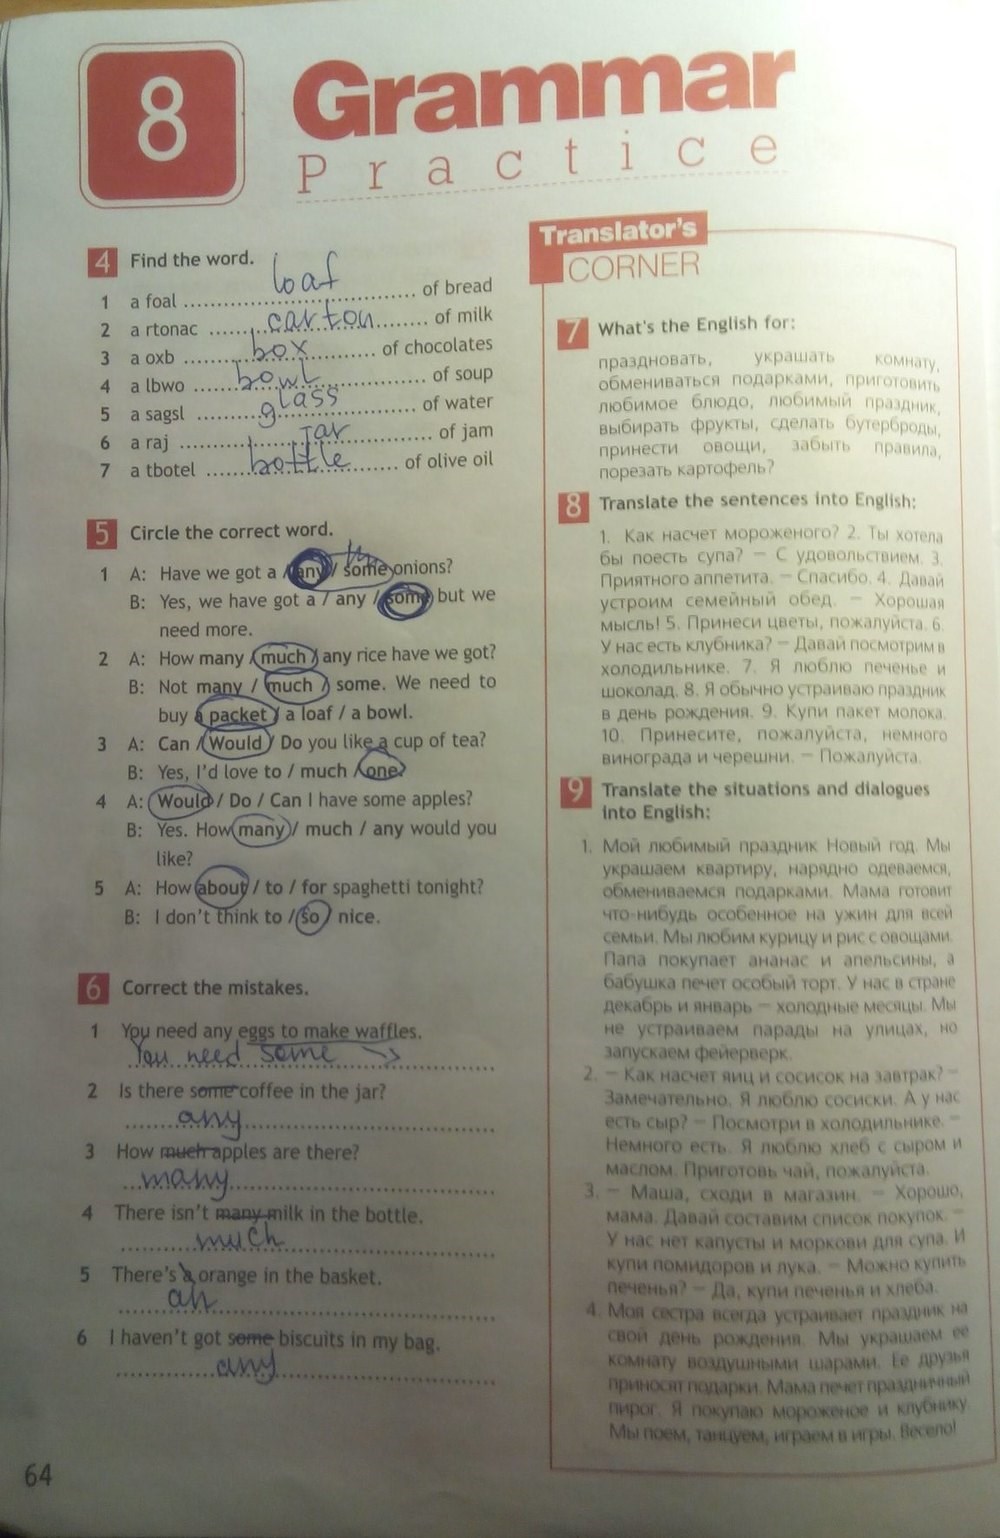 8
Grammar
Practice
4 Find the word.
loaf
1 a foal .......... of bread
2 a rtonac .... carton .... of milk
3 a oxb .... box .... of chocolates
4 a lbwo .... bowl .... of soup
5 a sagsl .... glass .... of water
6 a raj .... jar .... of jam
7 a tbotel .... bottle .... of olive oil
5 Circle the correct word.
1 A: Have we got a / any / some onions?
B: Yes, we have got a / any / some but we
need more.
2 A: How many / much / any rice have we got?
B: Not many / much / some. We need to
buy a packet / a loaf / a bowl.
3 A: Can / Would / Do you like a cup of tea?
B: Yes, I'd love to / much / one.
4 A: Would / Do / Can I have some apples?
B: Yes. How many / much / any would you
like?
5 A: How about / to / for spaghetti tonight?
B: I don't think to / so / nice.
6 Correct the mistakes.
1 You need any eggs to make waffles.
You need some
2 Is there some coffee in the jar?
any
3 How much apples are there?
many
4 There isn't many milk in the bottle.
much
5 There's a orange in the basket.
an
6 I haven't got some biscuits in my bag.
any
64
Translator's
CORNER
7 What's the English for:
праздновать, украшать комнату,
обмениваться подарками, приготовить
любимое блюдо, любимый праздник,
выбирать фрукты, сделать бутерброды,
принести овощи, забыть правила,
порезать картофель?
8 Translate the sentences into English:
1. Как насчет мороженого? 2. Ты хотела
бы поесть супа? – С удовольствием. 3.
Приятного аппетита. – Спасибо. 4. Давай
устроим семейный обед. – Хорошая
мысль! 5. Принеси цветы, пожалуйста. 6.
У нас есть клубника? – Давай посмотрим в
холодильнике. 7. Я люблю печенье и
шоколад. 8. Я обычно устраиваю праздник
в день рождения. 9. Купи пакет молока.
10. Принесите, пожалуйста, немного
винограда и черешни. – Пожалуйста.
9 Translate the situations and dialogues
into English:
1. Мой любимый праздник Новый год. Мы
украшаем квартиру, нарядно одеваемся,
обмениваемся подарками. Мама готовит
что-нибудь особенное на ужин для всей
семьи. Мы любим курицу и рис с овощами.
Папа покупает ананас и апельсины, а
бабушка печет особый торт. У нас в стране
декабрь и январь – холодные месяцы. Мы
не устраиваем парады на улицах, но
запускаем фейерверк.
2. – Как насчет яиц и сосисок на завтрак? –
Замечательно. Я люблю сосиски. А у нас
есть сыр? – Посмотри в холодильнике. –
Немного есть. Я люблю хлеб с сыром и
маслом. Приготовь чай, пожалуйста.
3. – Маша, сходи в магазин. – Хорошо,
мама. Давай составим список покупок. –
У нас нет капусты и моркови для супа. И
купи помидоров и лука. – Можно купить
печенья? – Да, купи печенья и хлеба.
4. Моя сестра всегда устраивает праздник на
свой день рождения. Мы украшаем ее
комнату воздушными шарами. Ее друзья
приносят подарки. Мама печет праздничный
пирог. Я покупаю мороженое и клубнику.
Мы поем, танцуем, играем в игры. Весело!